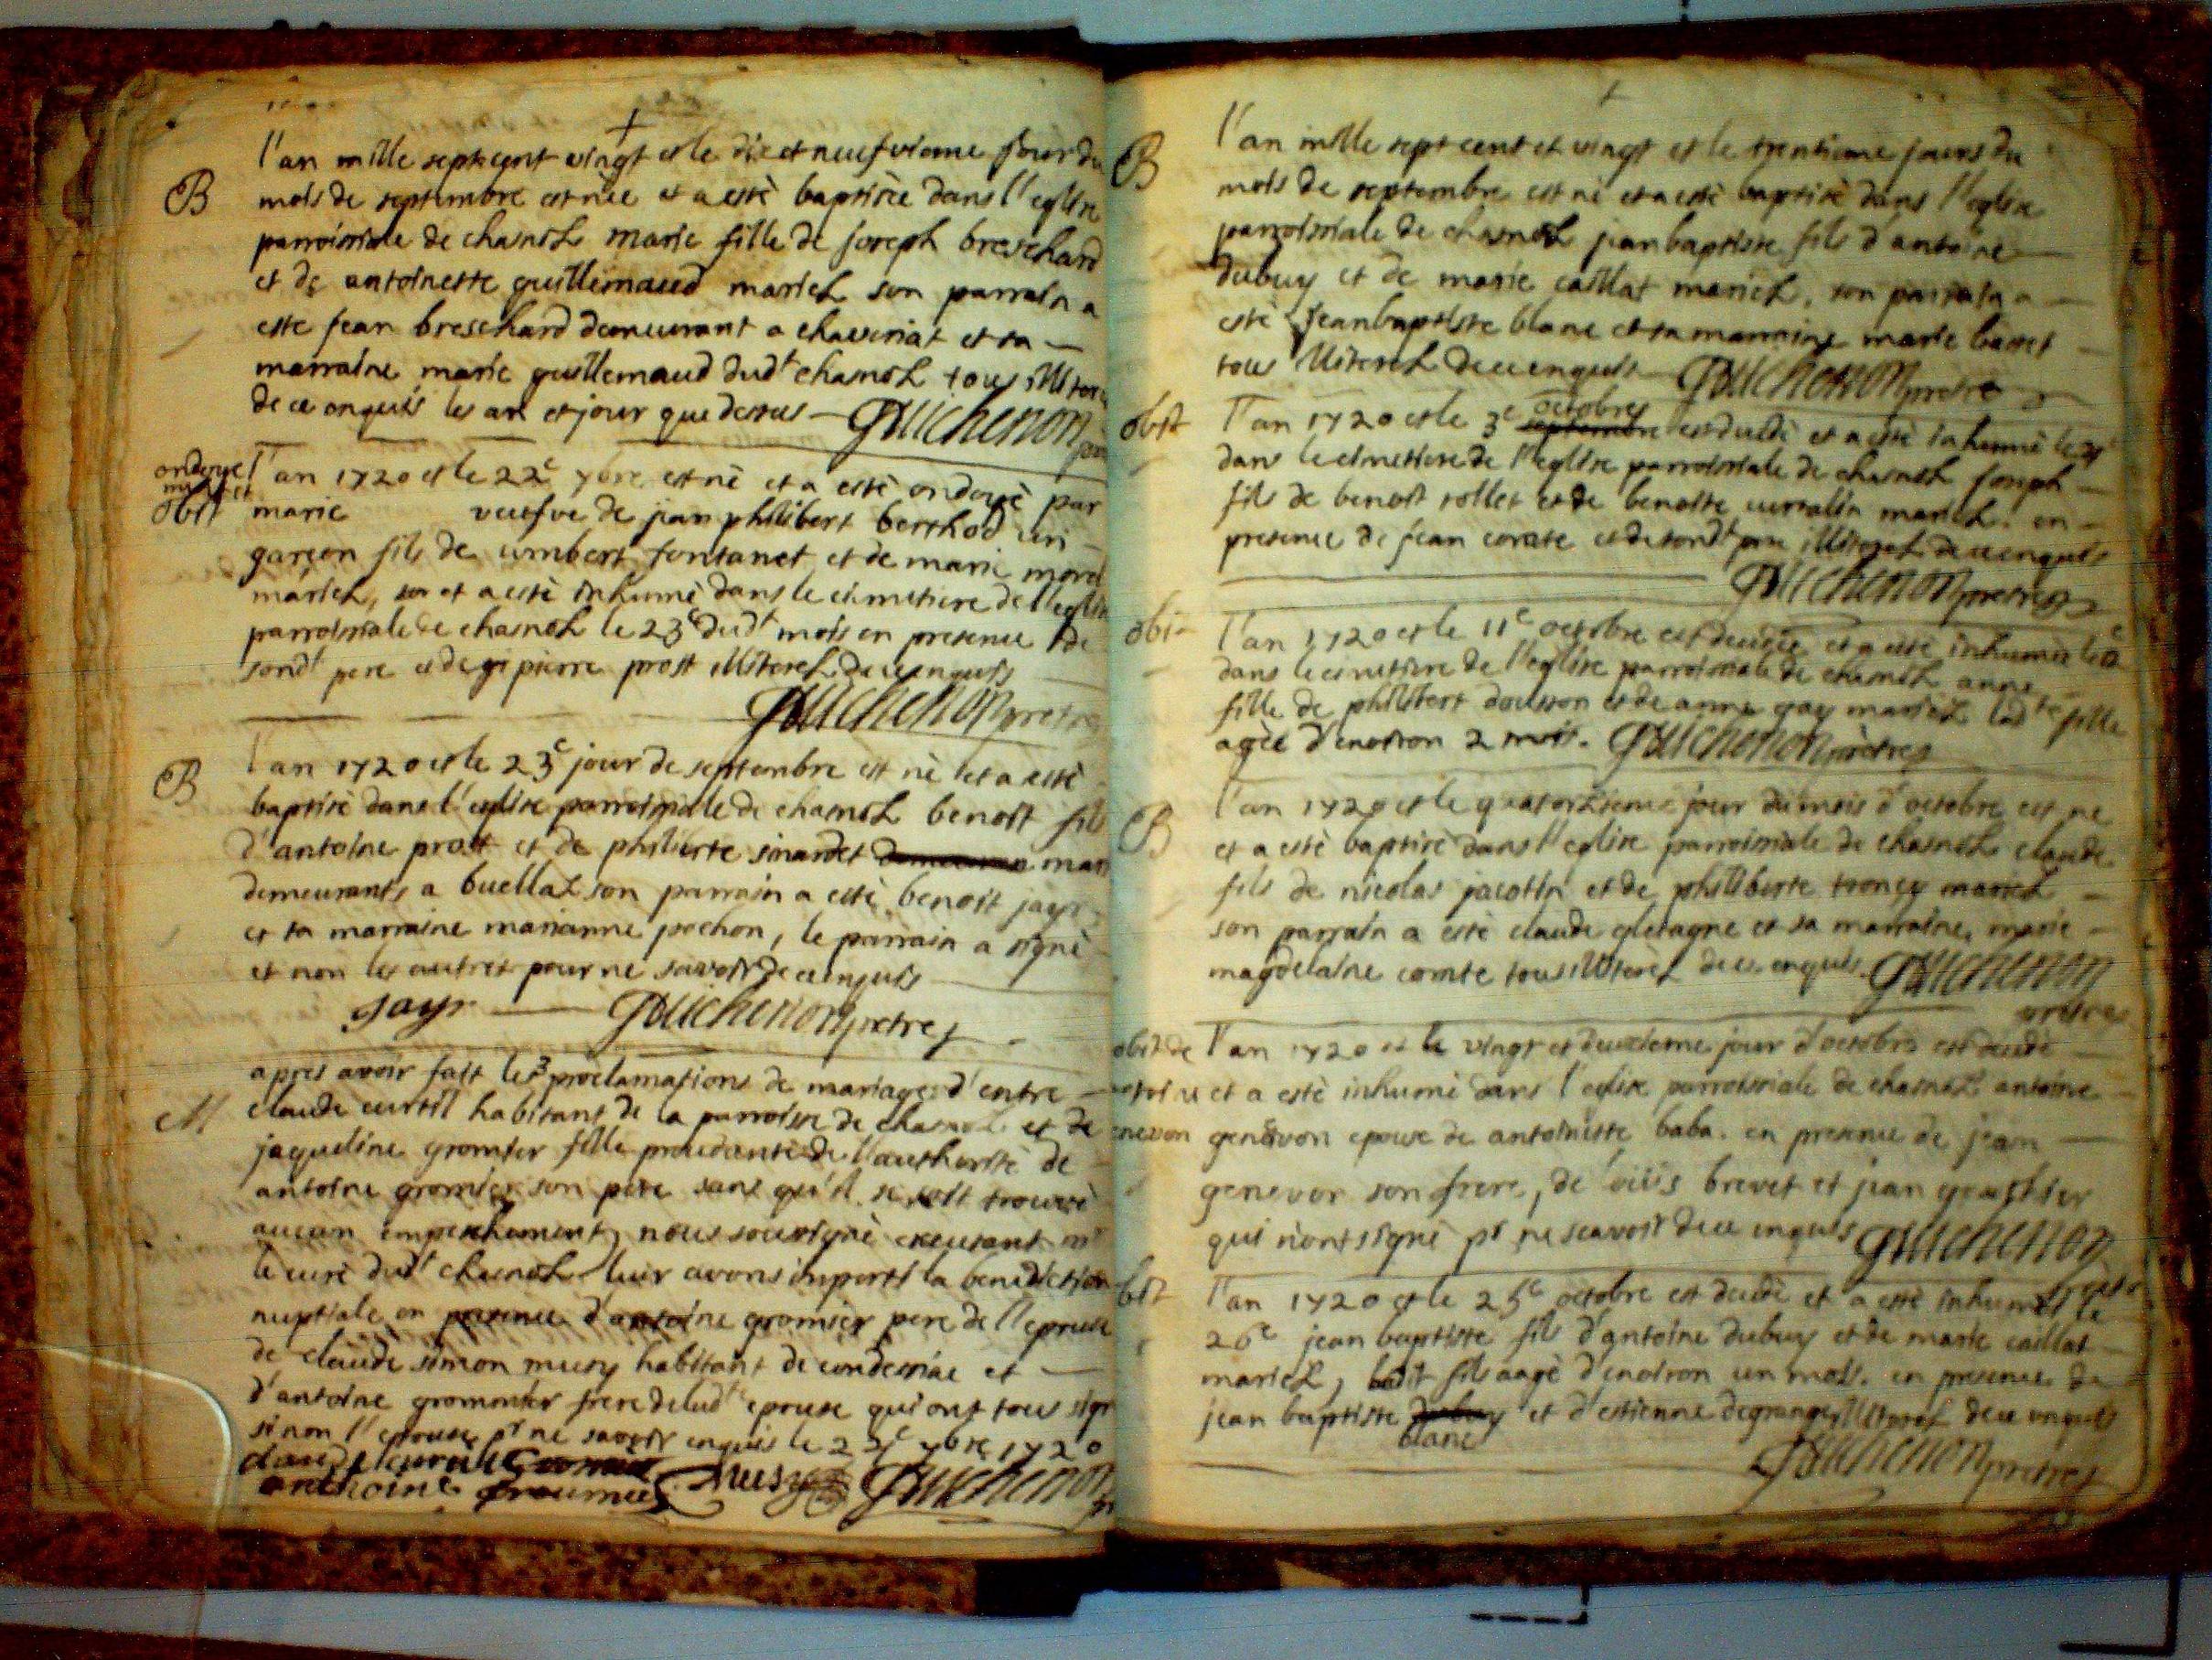 B
l'an mille sept cent vingt et le dix et neufvieme jour du
mois de septembre est nèe et a estè baptisèe dans l'eglise
parroissiale de chasnoz marie fille de joseph breschard
et de antoinette guillemaud mariez son parrain a
este jean breschard demeurant a chaveriat et sa
marraine marie guillemaud dudt chasnoz tous illiterez
de ce enquis les an et jour que dessus Guichenon
ondoyè
et
obit
l'an 1720 et le 22e 7bre est nè et a estè ondoyè par
marie veufve de jean philibert berthod un
garçon fils de umbert fontanet et de marie morel
mariez, et a estè inhumè dans le cimetiere de l'eglise
parroissiale de chasnoz le 23e dudt mois en presence de
sondt pere et de pierre prost illiterez de ce enquis
Guichenon pretre
B
l'an 1720 et le 23e jour de septembre est nè et a estè
baptisè dans l'eglise parroissiale de chasnoz benoit fils
d'antoine prost et de philiberte sinardet mari
demeurants a buellaz son parrain a estè benoit jayr
et sa marraine marianne pochon, le parrain a signè
et non les autres pour ne savoir de ce enquis
Jayr Guichenon pretre
M
apres avoir fait les 3 proclamations de mariage d'entre
claude curtil habitant de la parroisse de chasnoz et de
jaqueline gromier fille procedante de l'authoritè de
antoine gromier son pere sans qu'il se soit trouvè
aucun empeschement, nous soussignè
le curè dudt chasnoz leur avons imparti la benediction
nuptiale en presence d'antoine gromier pere de l'epouse
de claude simon musy habitant de condessiae et
d'antoine gromier frere de ladte epouse qui ont tous sign
sinon l'epouse pr ne savoir enquis le 7bre 1720
claude curtil
anthoine Musy Guichenon
B
l'an mille sept cent et vingt et le trentieme jours du
mois de septembre est nè et a estè baptisè dans l'eglise
parroissiale de chasnoz jean baptiste fils d'antoine
dubuy et de marie caillat mariez, son parrain a
estè jean baptiste blanc et sa marraine marie basset
tous illiterez de ce enquis Guichenon pretre
obit
l'an 1720 et le 3e septembre octobre est decedè et a estè inhumè le
dans le cimetiere de l'eglise parroissiale de chasnoz joseph
fils de benoit rollet et de benoite curtalin mariez en
presence de jean comte et de sondt pere illiterez de ce enquis
Guichenon pretre
obit
l'an 1720 et le 11e octobre est decedèe et a estè inhumèe le
dans le cimetiere de l'eglise parroissiale de chasnoz anne
fille de philibert dousson et de anne gay mariez ladte fille
agèe d'environ 2 mois. Guichenon pretre
B
l'an 1720 et le quatorzieme jour du mois d'octobre est ne
et a estè baptisè dans l'eglise parroissiale de chasnoz claude
fils de nicolas jacottin et de philiberte troncy mariez
son parrain a estè claude gletagne et sa marraine marie
magdelaine comte tous illiterez de ce enquis Guichenon
pretre
obit de
l'an 1720 et le vingt et deuxieme jour d'octobre est decedè
et a estè inhumè dans l'eglise parroissiale de chasnoz antoine
genevon epoux de antoinette baba. en presence de jean
genevon son frere, de brevet et jean
qui n'ont signè pr ne scavoir de ce enquis Guichenon
pretre
obit
l'an 1720 et le 25e octobre est decedè et a estè inhumè le
26e jean baptiste fils d'antoine dubuy et de marie caillat
mariez, ledit fils aagè d'environ un mois. en presence de
jean baptiste dubuy et d'estienne degrange illiterez de ce enquis
blanc
Guichenon pretre